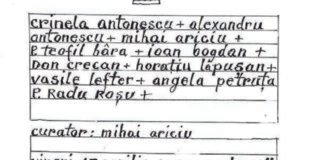 crinela antonescu + alexandru
antonescu + mihai ariciu +
P. teofil bâra + ioan bogdan +
Don crecan + horațiu lăpușan +
vasile lefter + angela petruța
P. Radu Roșu +
curator: mihai ariciu